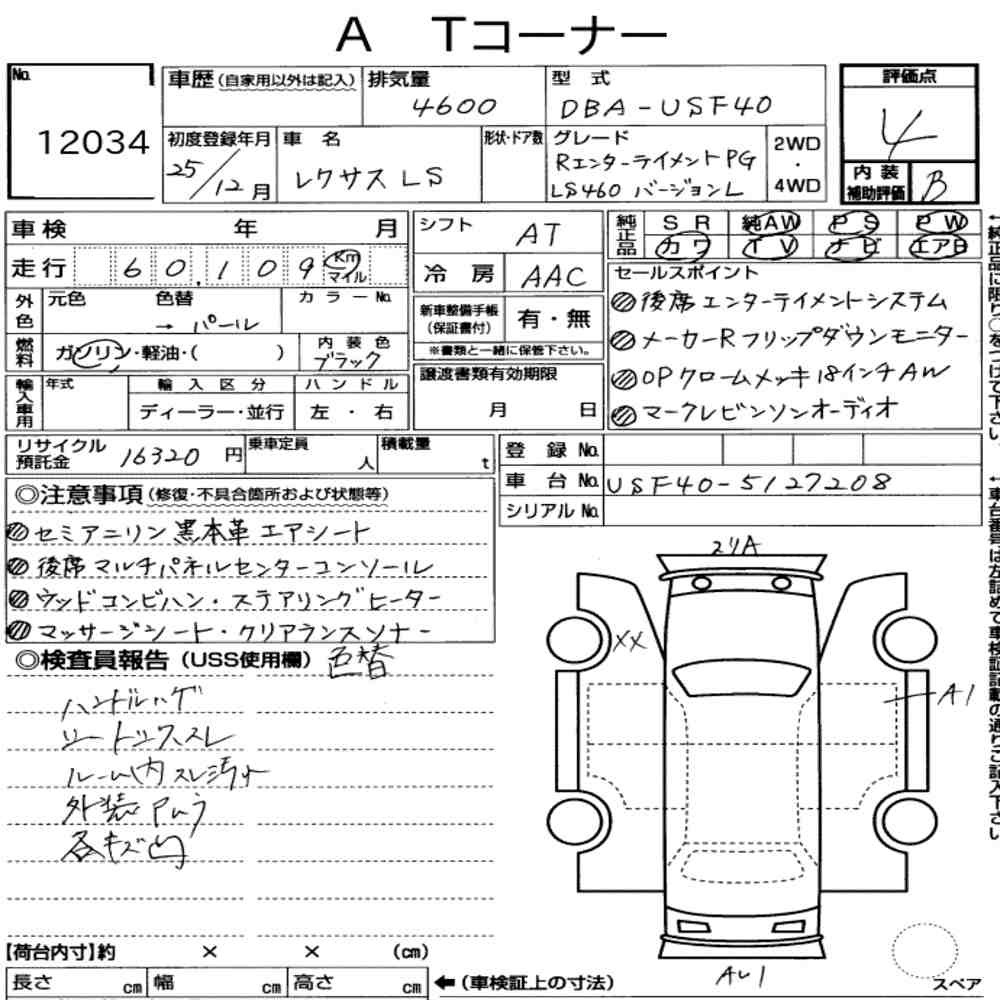 A Tコーナー
No. 12034
車歴(自家用以外は記入) 排気量 4600 型式 DBA-USF40
初度登録年月 25/12月 車名 レクサスLS 形状・ドア数 グレード RエンターテイメントPG LS460 バージョンL 2WD・4WD
評価点 4
内装補助評価 B
車検 年 月
走行 60,109 Km マイル
外色 元色 色替 → パール カラーNo.
燃料 ガソリン・軽油・( ) 内装色 ブラック
輸入車用 年式 輸入区分 ディーラー・並行 ハンドル 左・右
シフト AT
冷房 AAC
新車整備手帳(保証書付) 有・無
※書類と一緒に保管下さい。
譲渡書類有効期限
月 日
純正品 SR 純AW PS PW
カワ TV ナビ エアB
セールスポイント
後席エンターテイメントシステム
メーカーRフリップダウンモニター
OPクロームメッキ18インチAW
マークレビンソンオーディオ
リサイクル預託金 16320円 乗車定員 人 積載量 t
登録No.
車台No. USF40-5127208
シリアルNo.
◎注意事項(修復・不具合箇所および状態等)
セミアニリン黒本革エアシート
後席マルチパネルセンターコンソール
ウッドコンビハン・ステアリングヒーター
マッサージシート・クリアランスソナー
◎検査員報告(USS使用欄) 色替
ハンドルハゲ
シートシワ、スレ
ルーム内スレ汚れ
外装
各キズ凹
XX
A1
【荷台内寸】約 × × (cm)
長さ cm 幅 cm 高さ cm ←(車検証上の寸法)
スペア
←純正品に限り○をつけて下さい。
←車台番号は左詰めで車検証記載の通りご記入下さい。